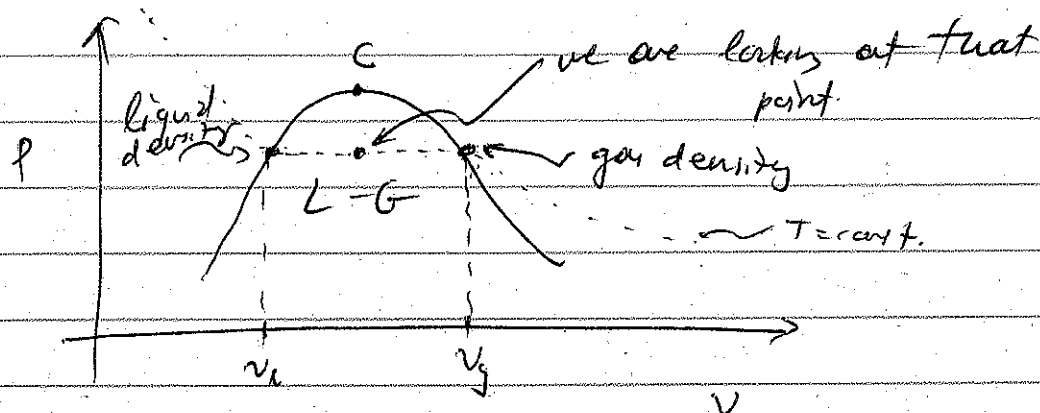 C
we are looking at that
point.
liquid
density
P
gas density
L-G
T=const.
v_l
v_g
V